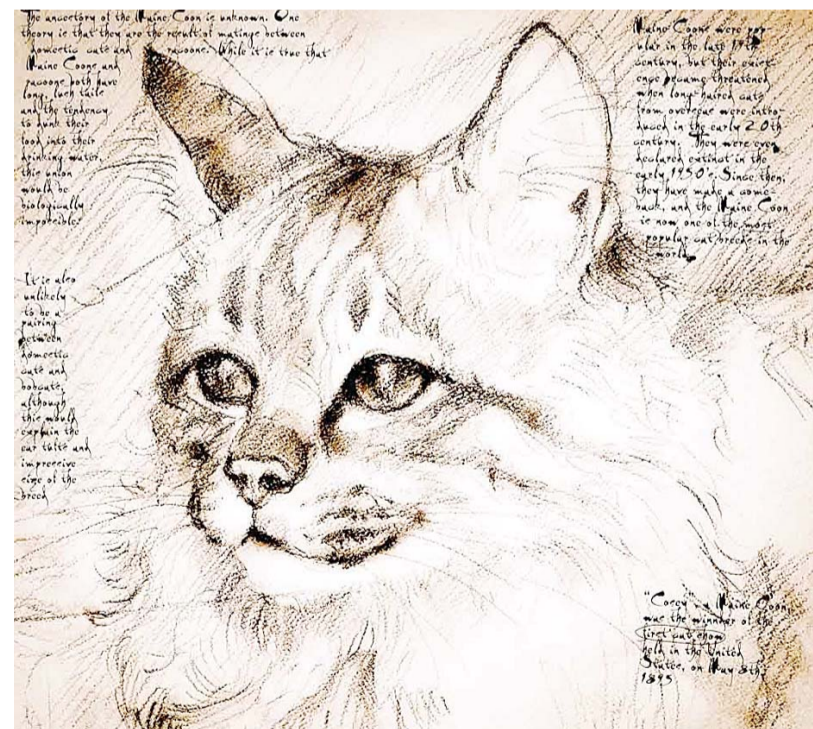 The ancestory of the Maine Coon is unknown. One
theory is that they are the result of matings between
domestic cats and racoons. While it is true that
Maine Coons and
racoons both have
long, lush tails
and the tendency
to dunk their
food into their
drinking water,
this union
would be
biologically
impossible.
It is also
unlikely
to be a
pairing
between
domestic
cats and
bobcats,
although
this would
explain the
ear tufts and
impressive
size of the
breed
Maine Coons were pop-
ular in the late 19th
century, but their exist-
ence became threatened
when long haired cats
from overseas were intro-
duced in the early 20th
century. They were even
declared extinct in the
early 1950's. Since then,
they have made a come-
back, and the Maine Coon
is now one of the most
popular cat breeds in the
world.
"Cosey", a Maine Coon,
was the winnner of the
first cat show
held in the United
States, on May 8th,
1895